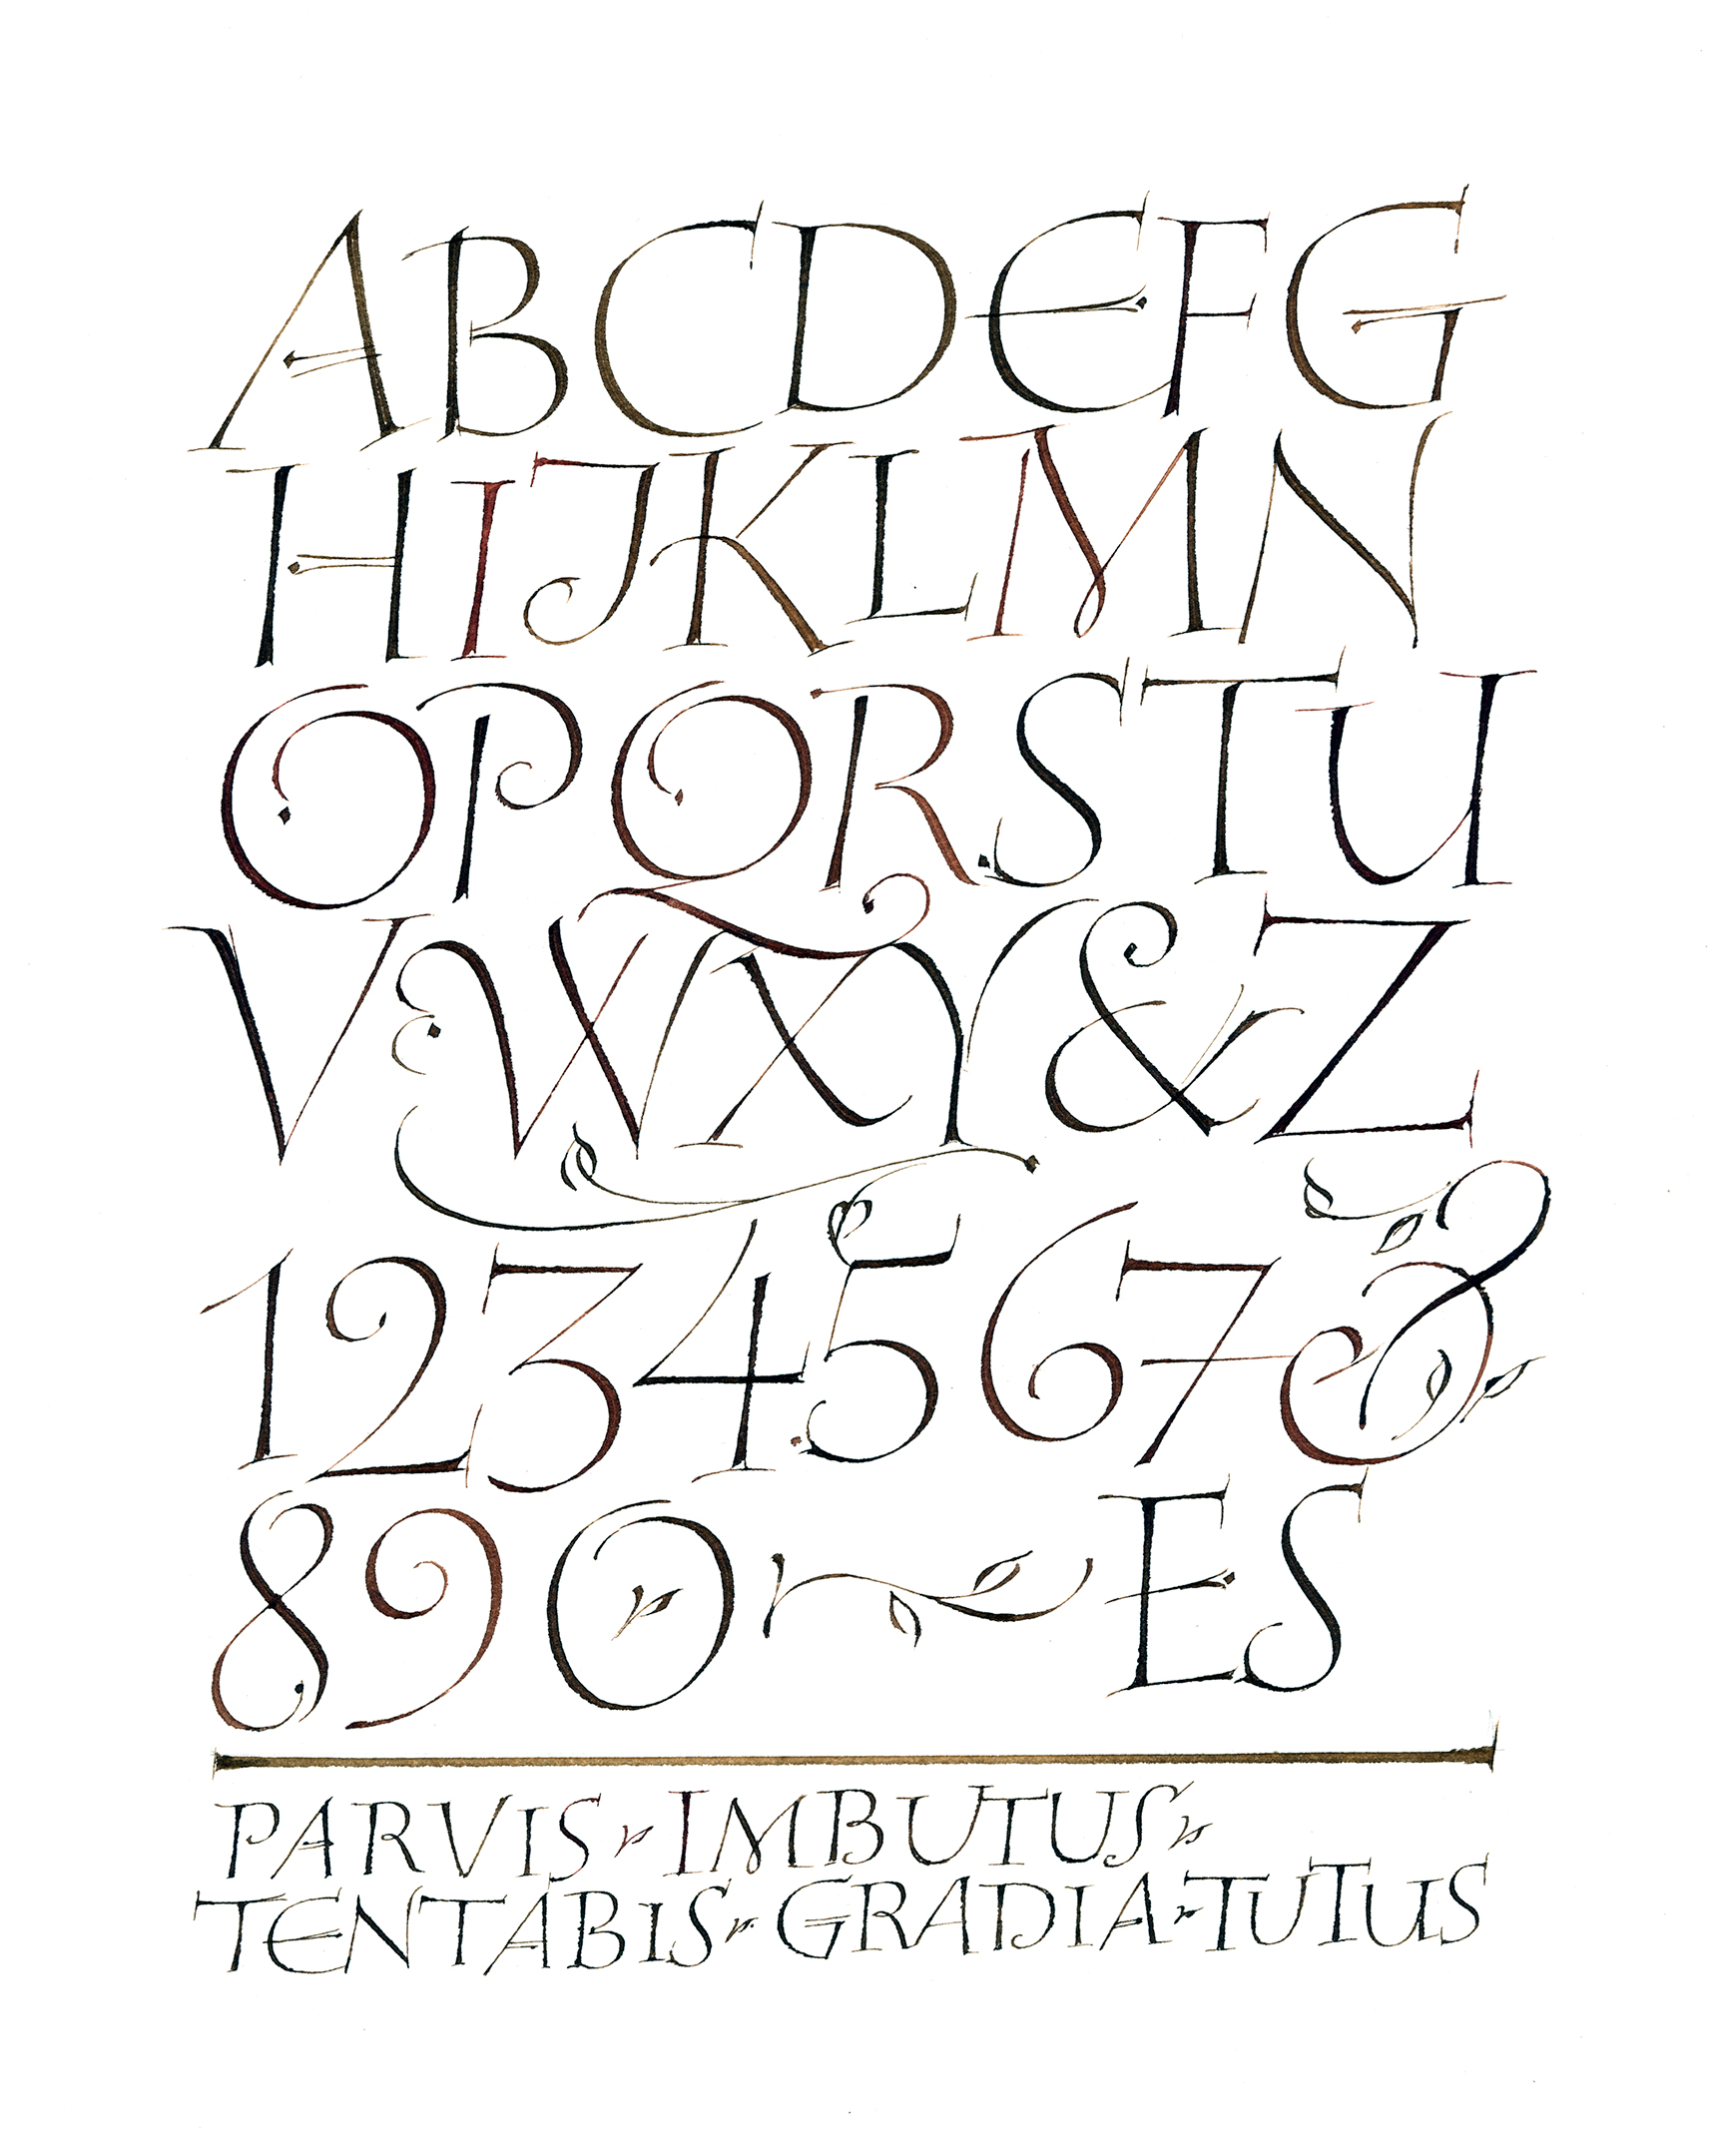 ABCDEFG
HIJKLMN
OPQRSTU
VWXY&Z
1234567&
890 ES
PARVIS IMBUTUS
TENTABIS GRADIA TUTUS